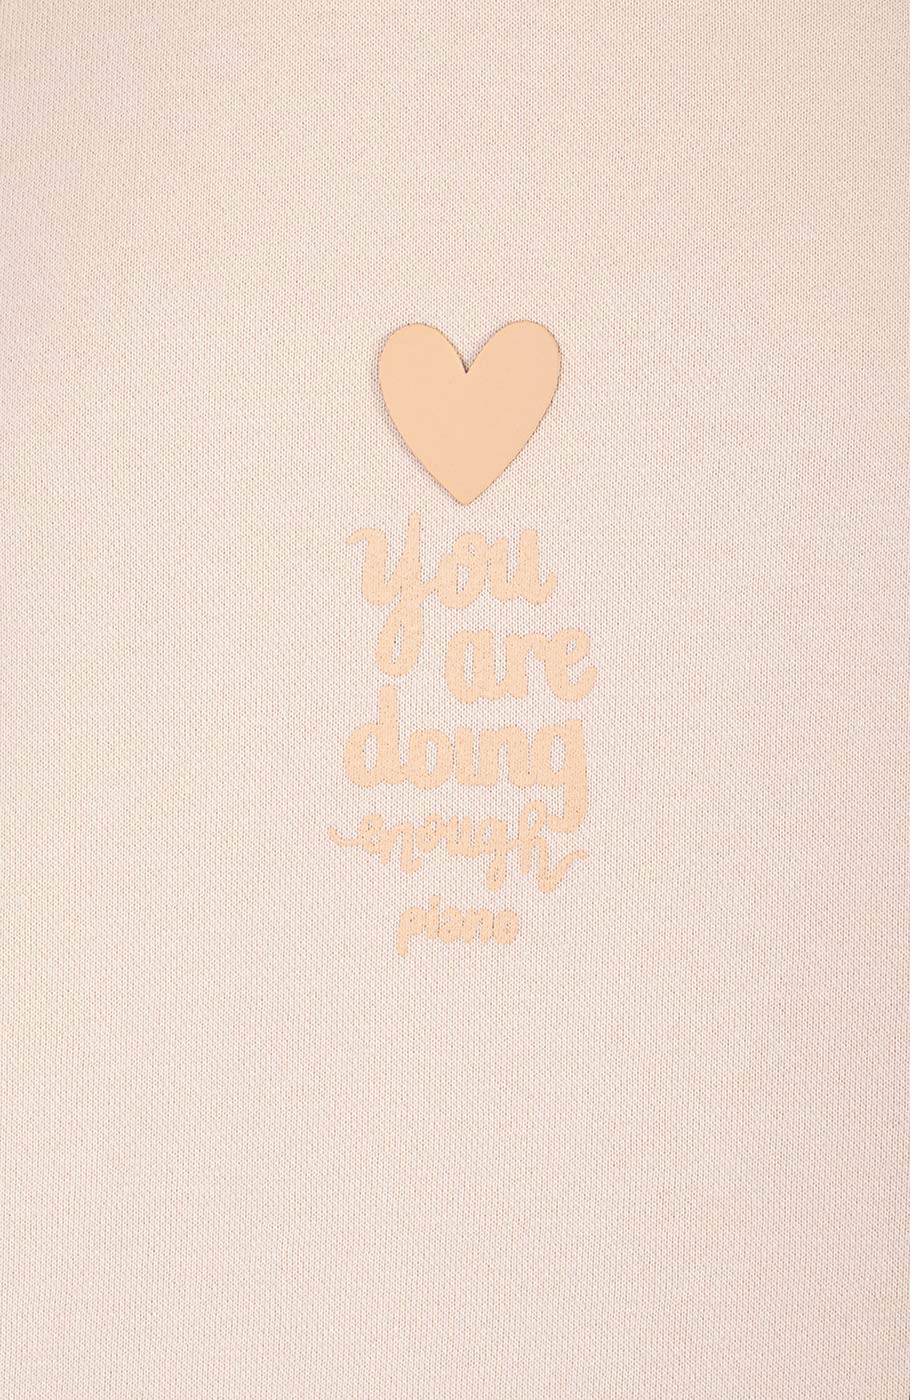 You
are
doing
enough
piano